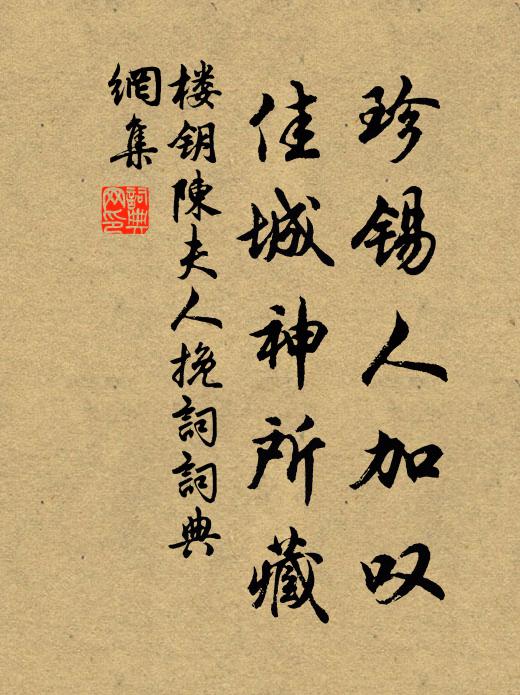 珍锡人加叹
佳城神所藏
楼钥陳夫人挽詞詞典
網集
詞典網印